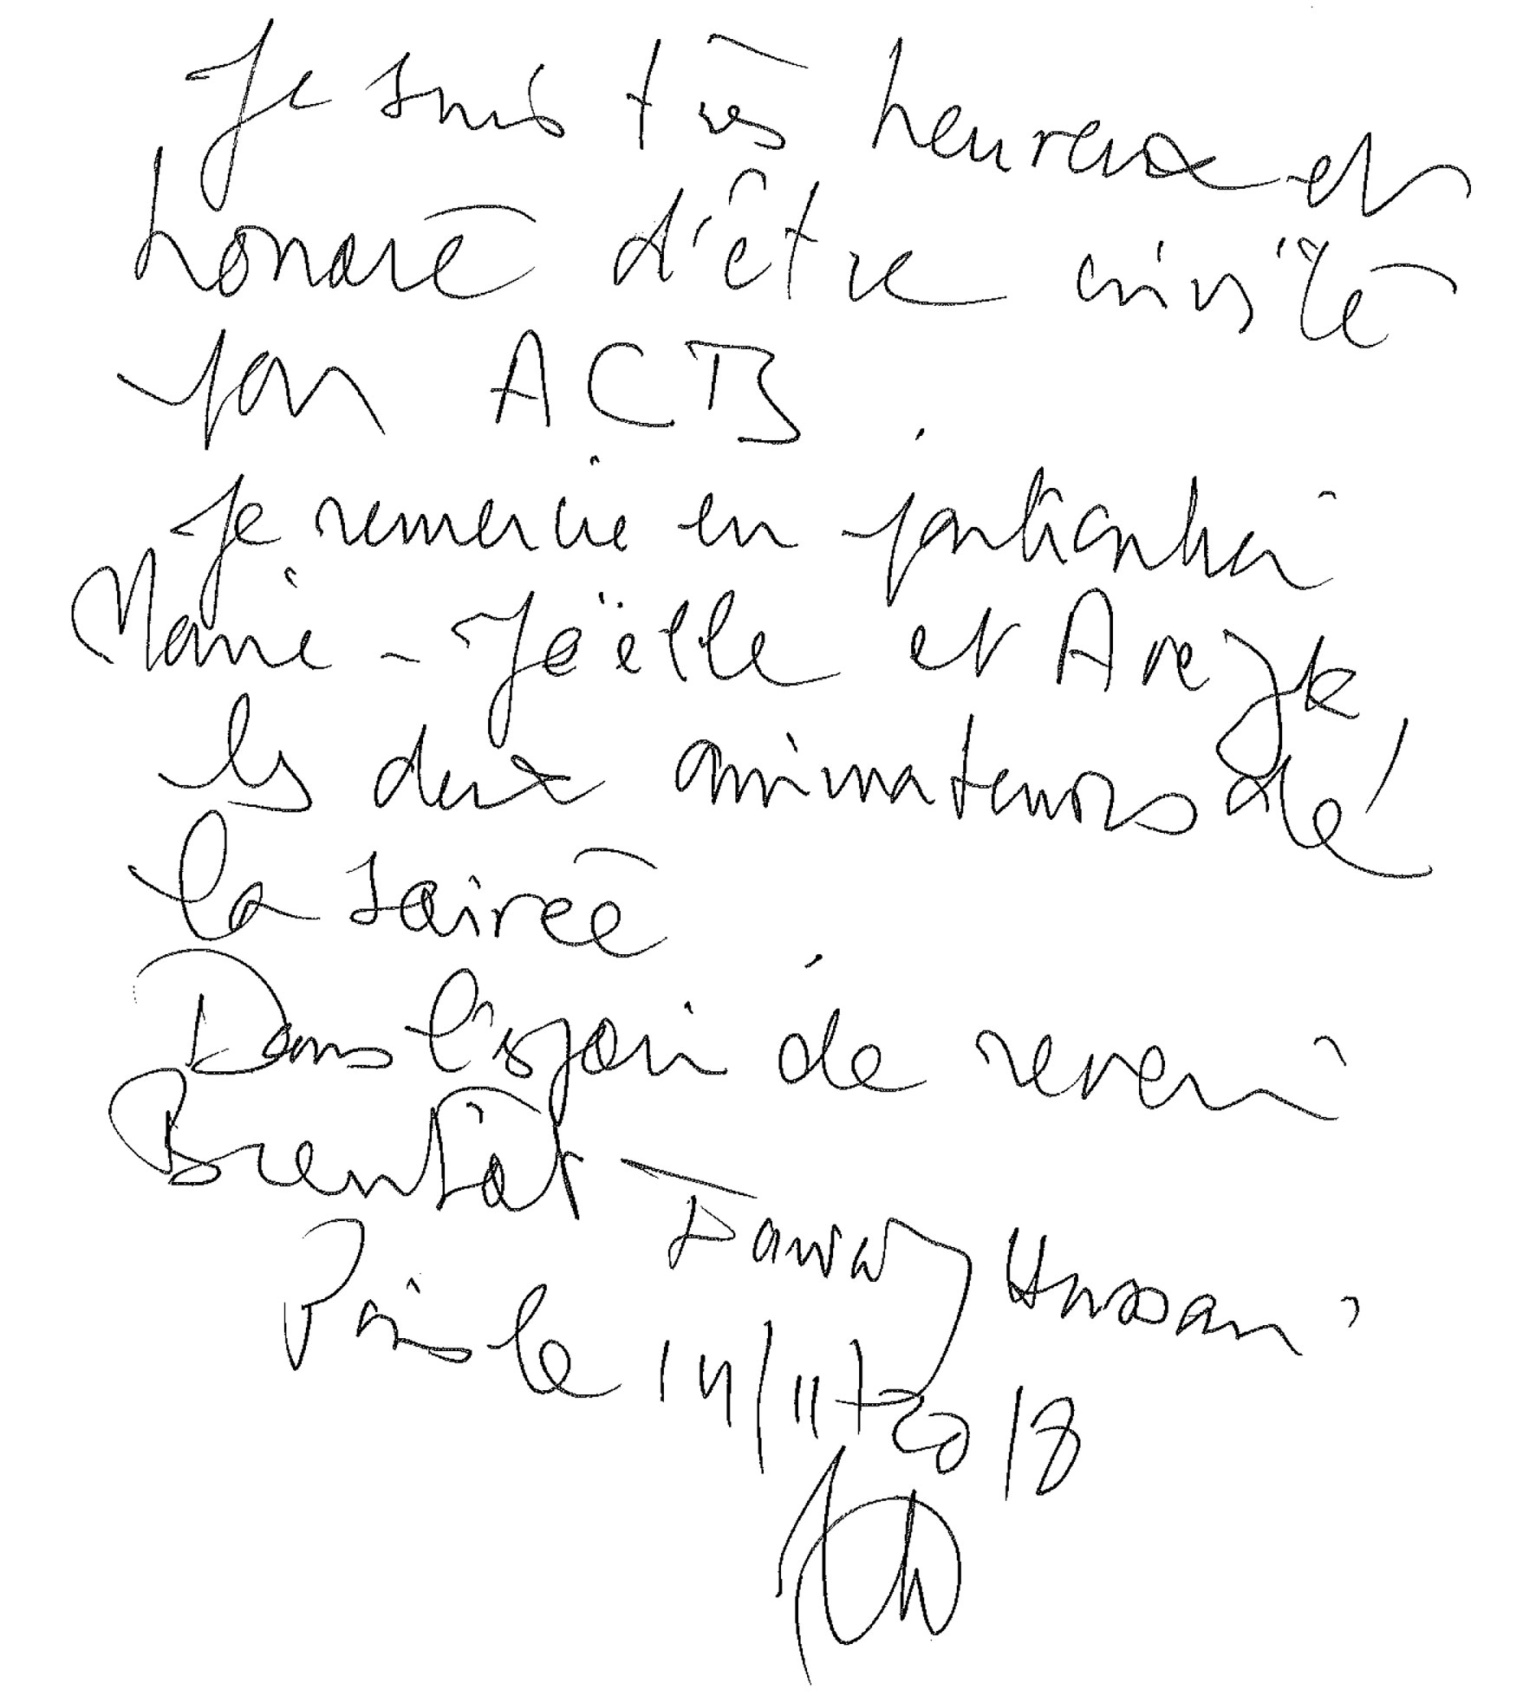 Je suis très heureux et
honoré d'être invité
par ACTB
Je remercie en particulier
Marie-Joëlle et Arezki,
les deux animateurs de
la soirée
Dans l'espoir de revenir
Bientôt Jawad Hassan
Paris le 14/11/2018